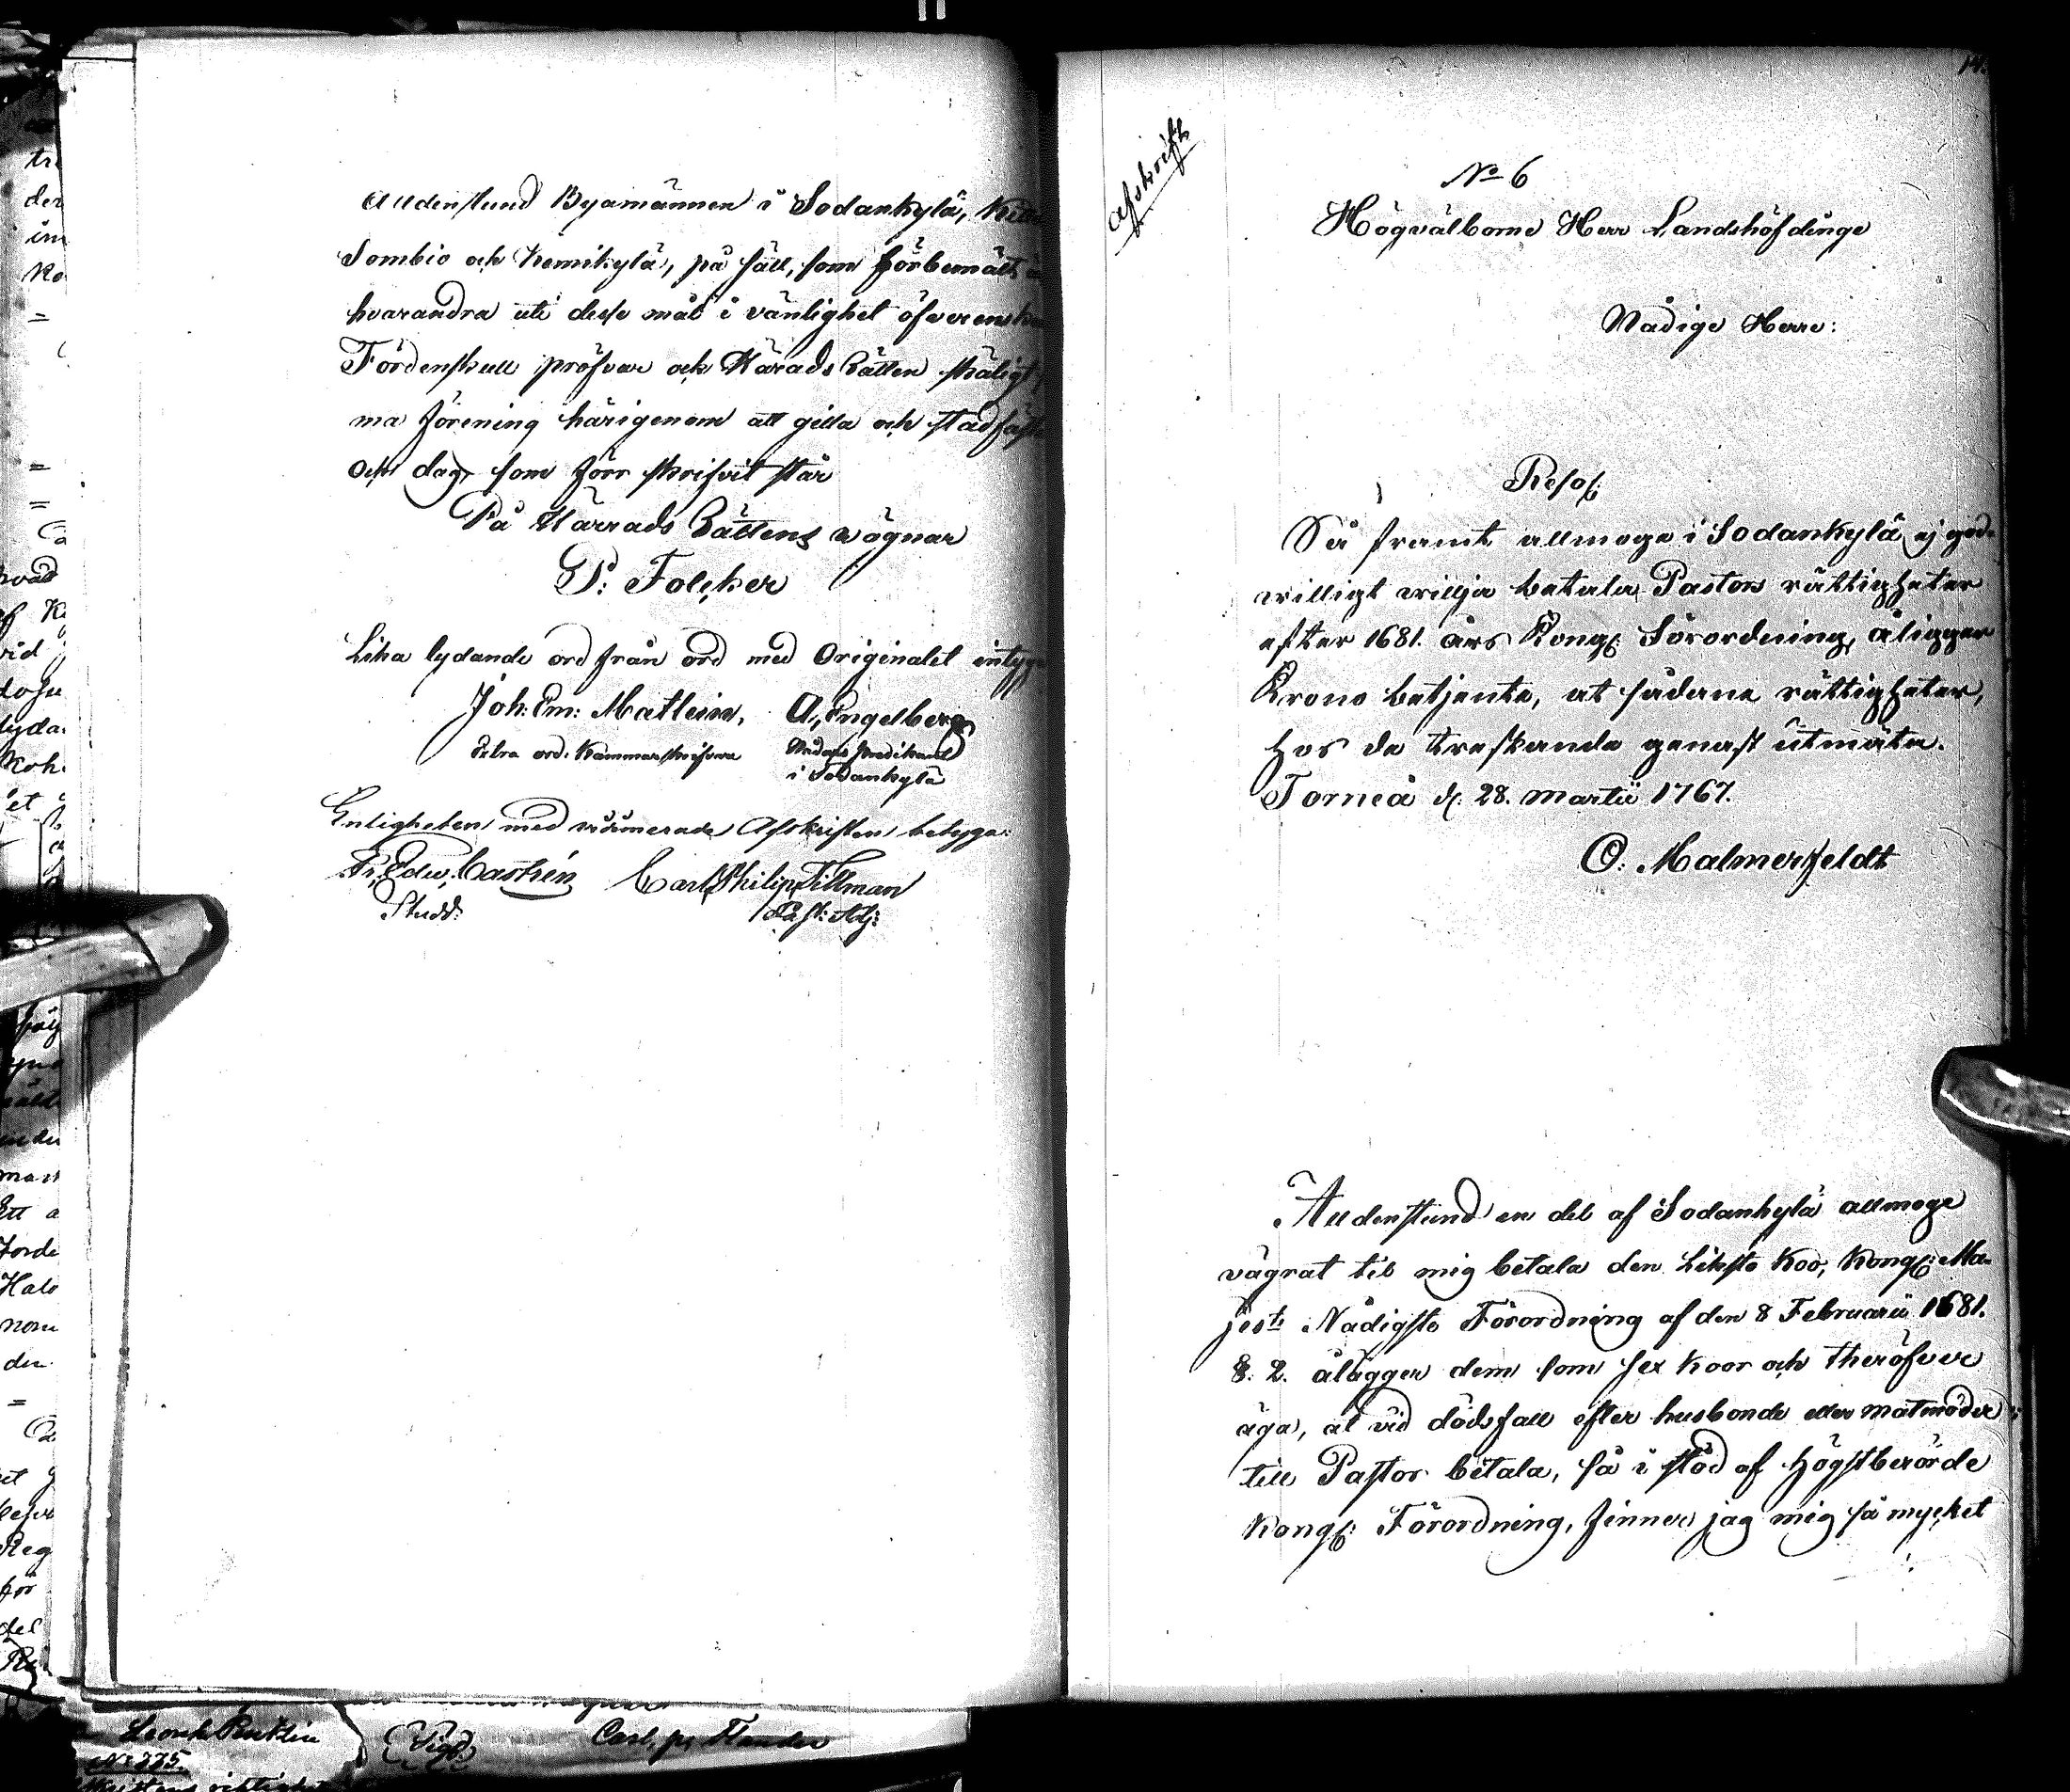 Alldenstund Byamännen i Sodankylä,
Sombio och Kemikylä, på sätt, som förbemält
hvarandra uti desse mål i vänlighet öfverens
Fördenskull pröfvar ock Härads Rätten skäligt,
ma förening härigenom att gilla och stadfäste
och dag, som förr skrifvit står
På Härrads Rättens vägnar
P: Folcker
Lika lydande ord från ord med Originalet intyga
Joh: Em: Matlein, A, Engelberg
Extra ord. Kammarskrifvare
i Sodankylä
Enligheten med vidimerade Afskriften betyga:
Fr, Edw, Castrén Carl Philip Tillman
Studd: Past: Adj:
Afskrift
No 6
Högvälborne Herr Landshöfdinge
Nådige Herre:
Resol:
Så framt allmoge i Sodankylä ej god-
willigt willja betala Pastors rättigheter
efter 1681. års Kongl: Förordning, åligger
Krono betjente, at sådane rättigheter,
hos de treskande genast utmäta.
Torneå d. 28. Martii 1767.
O: Malmerfeldt
Alldenstund en del af Sodankylä allmoge
vägrat til mig betala den Liksto Koo, Kongl: Ma-
jest: Nådigste Förordning af den 8 Februarii 1681.
§. 2. ålägger dem som sex Koor och theröfver
äga, at vid dödsfall efter husbonde eller matmoder
till Pastor betala, så i stöd af högstberörde
Kongl: Förordning, finner jag mig så mycket